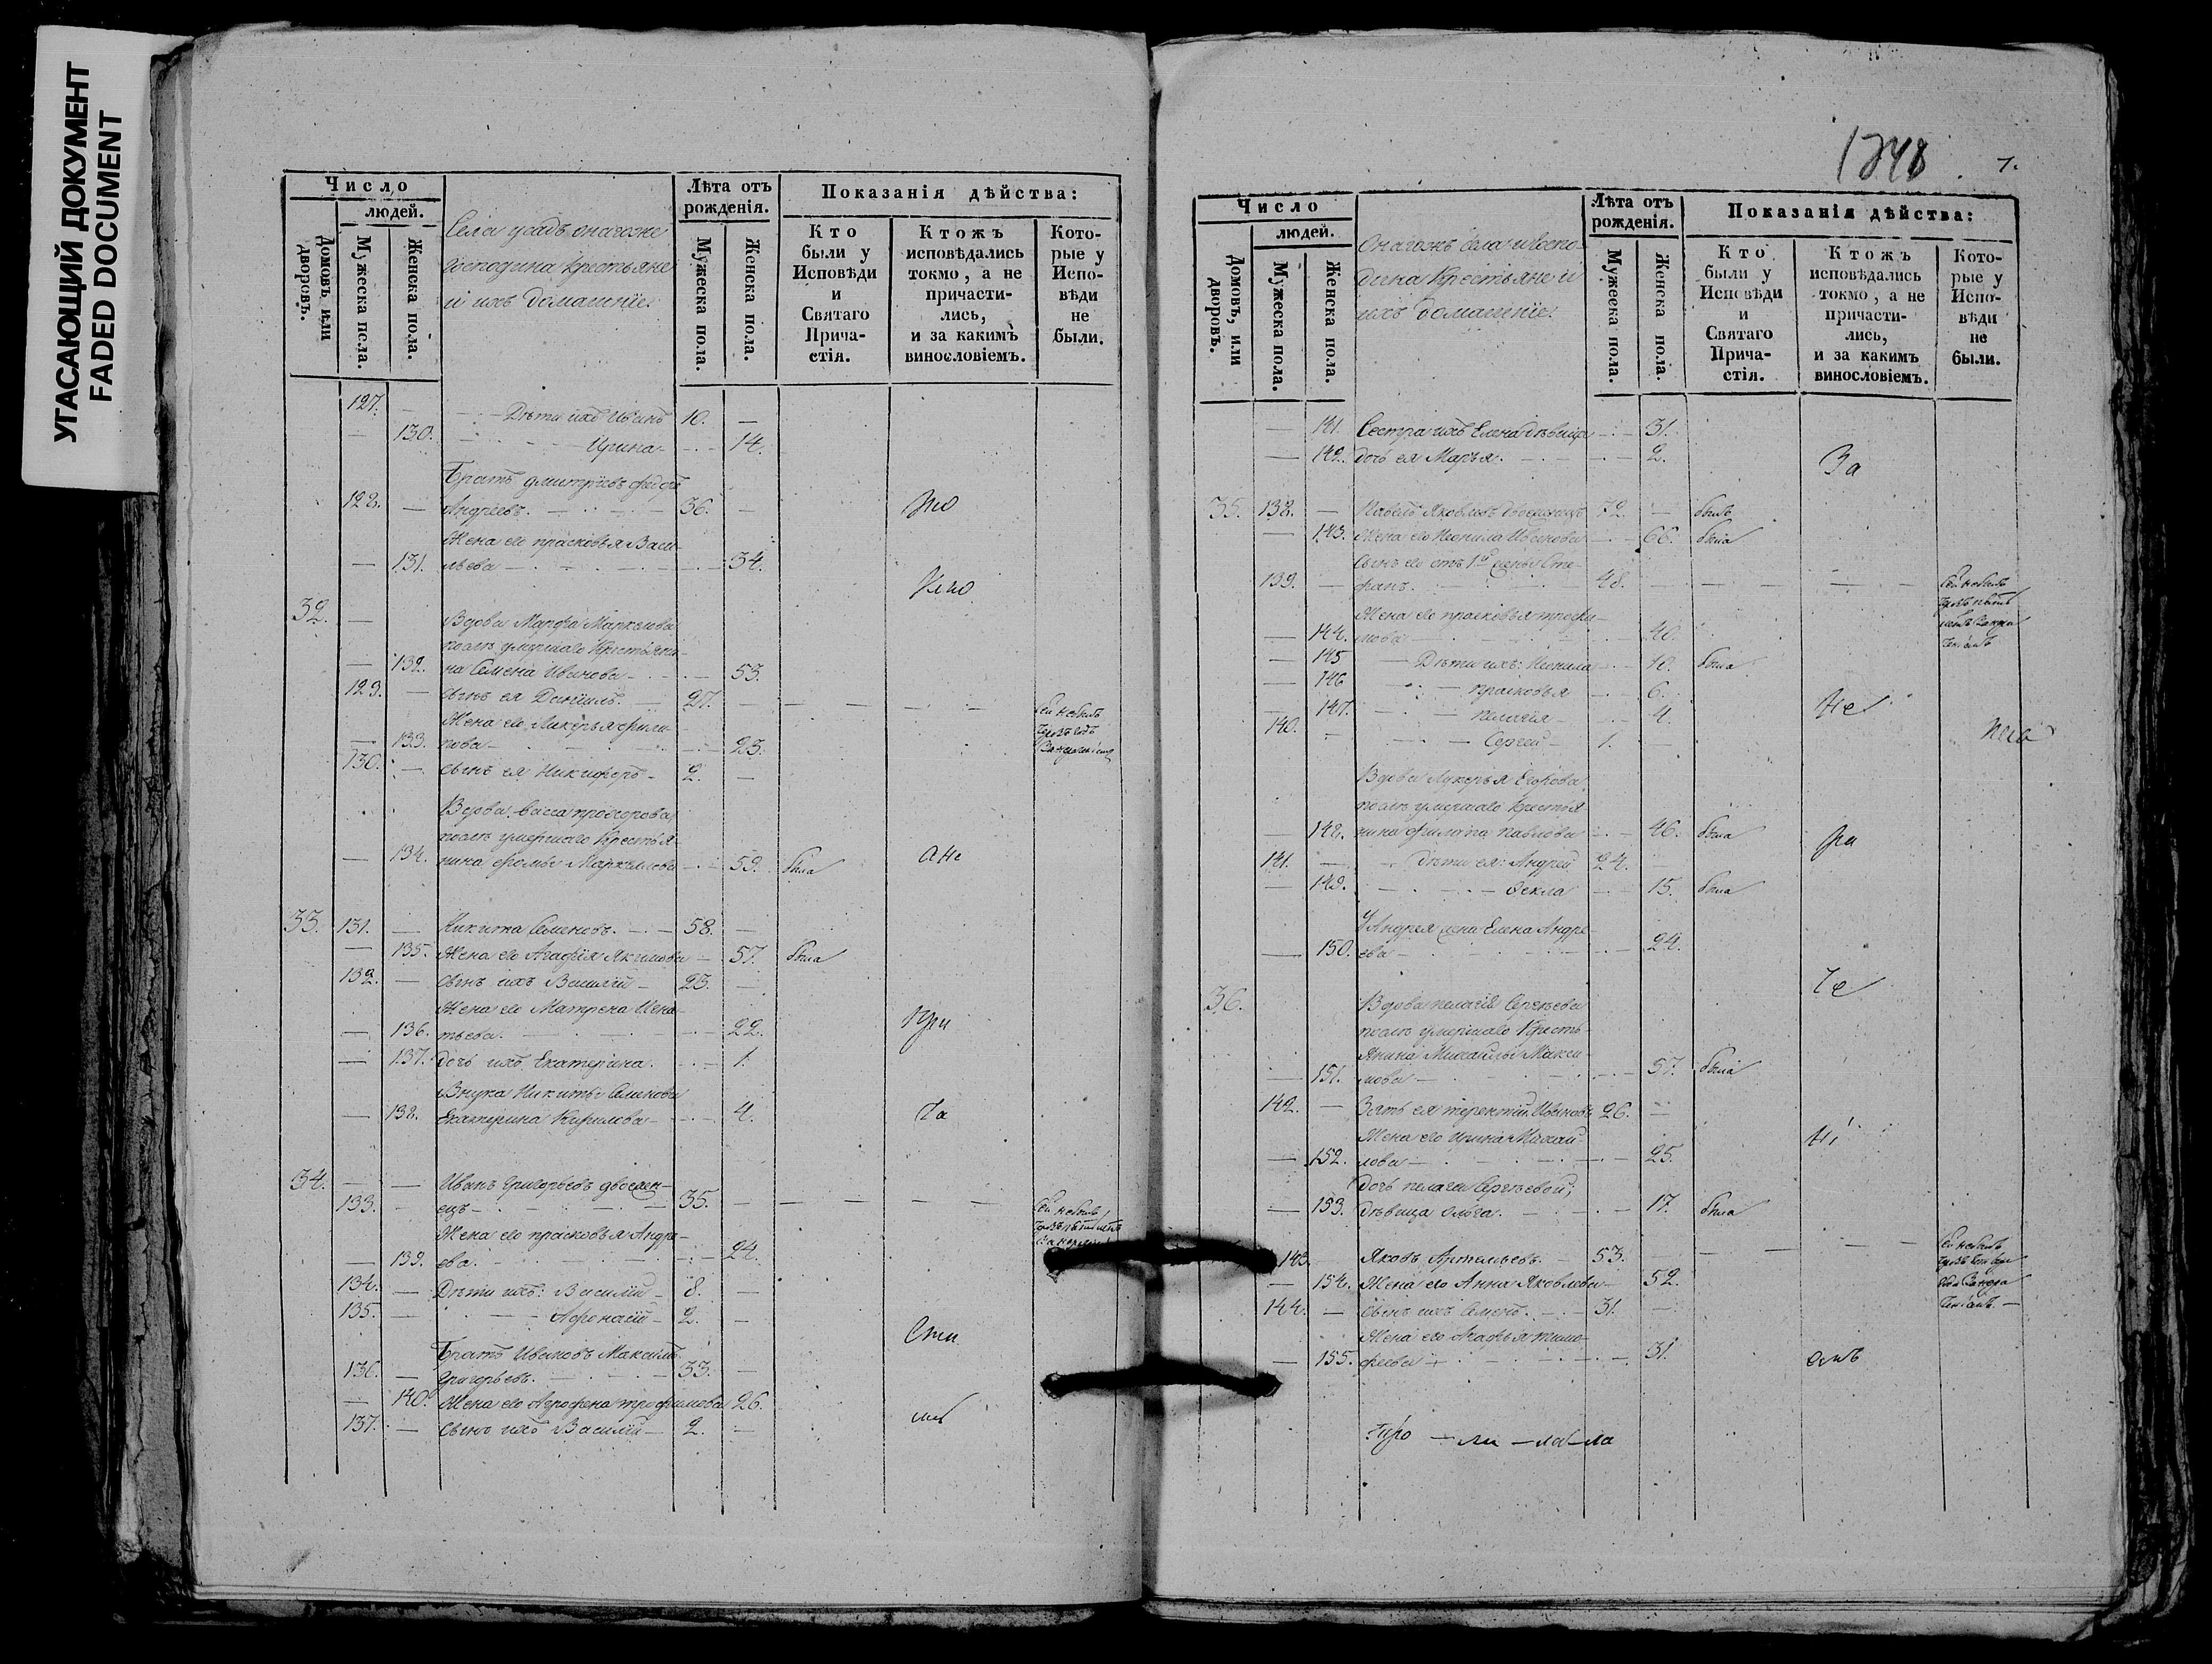 УГАСАЮЩИЙ ДОКУМЕНТ
FADED DOCUMENT
Число
людей.
Домовъ или дворовъ.
Мужеска пола.
Женска пола.
Села усадъ онагоже
Господина Крестьяне
и ихъ домашніе.
Лѣта отъ рожденія.
Мужеска пола.
Женска пола.
Показанія дѣйства:
Кто были у Исповѣди и Святаго Прича-стія.
Ктожъ исповѣдались токмо, а не причасти-лись, и за какимъ винословіемъ.
Кото-рые у Испо-вѣди не были.
127. — Дѣти ихъ Иванъ 10. —
— 130. Ирина — 14.
Братъ Дмитріевъ Федоръ
128. — Андреевъ. 36. —
Жена его Прасковья Васи-
— 131. льева — 34.
32. — Вдова Марфа Маркелова
послѣ умершаго Крестьяни-
— 132. на Семена Иванова — 53.
129. — Сынъ ея Даніилъ. 27. — Сей небылъ
Жена его Лукерья Фили-
— 133. пова — 23.
130. — Сынъ ея Никифоръ — 2. —
Вдова Васса Прохорова
послѣ умершаго Крестья-
— 134. нина Фомы Маркелова — 59. была а не
33. 131. — Никита Семеновъ. — 58. —
— 135. Жена его Агафія Якимова — 57. была
132. — Сынъ ихъ Василій — 23. —
Жена его Матрена Игна-
— 136. тьева. — 22. при
— 137. Дочь ихъ Екатерина. — 1.
Внука Никиты Семенова
— 138. Екатерина Кирилова — 4. ча
34. — — Иванъ Григорьевъ двоежен-
133. ецъ — 35. — Сей небылъ
Жена его Прасковья Андре-
— 139. ева. — 24.
134. — Дѣти ихъ: Василій — 8. —
135. — Афонасій — 2. — Сти
Братъ Ивановъ Максимъ
136. — Григорьевъ. — 33. —
— 140. Жена его Агрофена Трофимова 26.
137. — Сынъ ихъ Василій — 2. —
1248
7.
Число
людей.
Домовъ, или дворовъ.
Мужеска пола.
Женска пола.
Онагожъ села и Госпо-
дина Крестьяне и
ихъ домашніе.
Лѣта отъ рожденія.
Мужеска пола.
Женска пола.
Показанія дѣйства:
Кто были у Исповѣди и Святаго Прича-стія.
Ктожъ исповѣдались токмо, а не причасти-лись, и за какимъ винословіемъ.
Кото-рые у Испо-вѣди не были.
— 141. Сестра ихъ Елена дѣвица — 31.
— 142. дочь ея Марья. — 2. За
35. 138. — Павелъ Яковлевъ двоеженецъ 72. — былъ
— 143. Жена его Неонила Иванова — 66. была
Сынъ его отъ 1й жены Сте-
139. — фанъ. 48. — Сей небылъ
Жена его Прасковья Трофи-
— 144. мова — 40.
— 145 — Дѣти ихъ: Неонила — 10. была
— 146 — Прасковья — 6.
— 147. — Пелагія — 4. Не
140. — Сергей — 1. —
Вдова Лукерья Егорова
послѣ умершаго Крестья-
— 148. нина Филипа Павлова — 46. была
141. — Дѣти ея: Андрей 24. —
— 149. — Фекла — 15. была
У Андрея жена Елена Андре-
— 150. ева — 24.
36. Вдова Пелагія Сергѣева
послѣ умершаго Кресть-
янина Михайлы Макси-
— 151. мова — 57. была
142. — Зять ея Терентій Ивановъ 26. —
Жена его Ирина Михай-
— 152. лова — 25.
Дочь Пелагеи Сергѣевой,
— 153. дѣвица Ольга. — 17. была
143. Яковъ Артемьевъ. — 53. — Сей небылъ
— 154. Жена его Анна Яковлева — 52.
144. — Сынъ ихъ Семенъ. — 31. —
Жена его Агафья Тимо-
— 155. феева — 31.